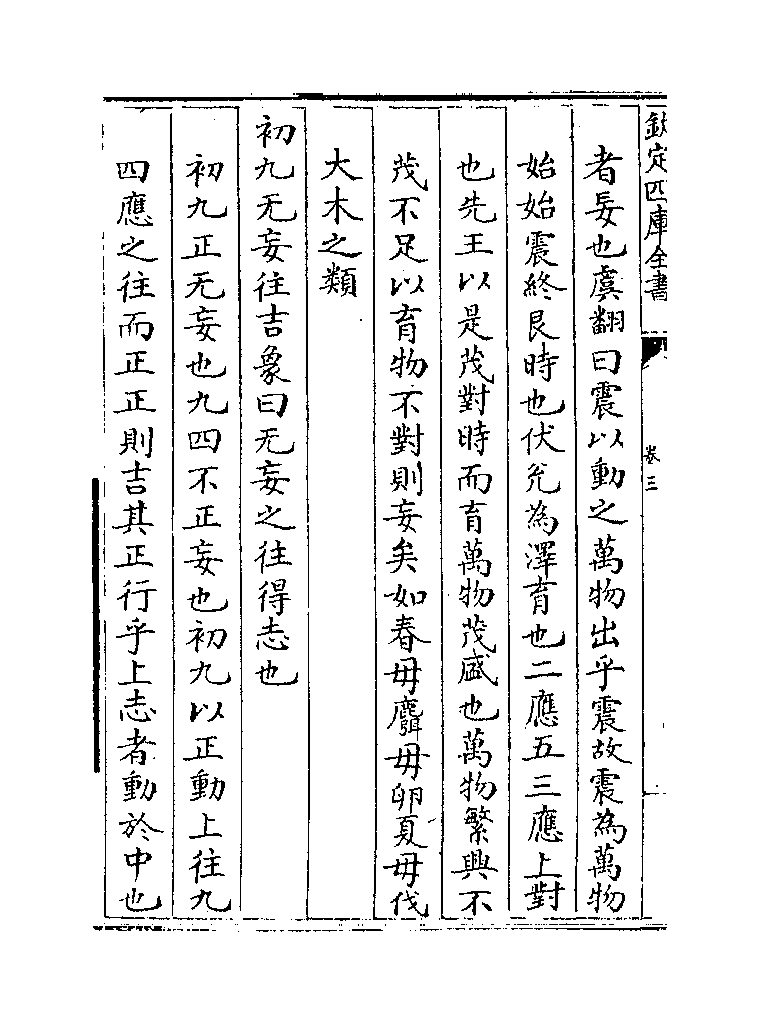 欽定四庫全書
卷三
者妄也虞翻曰震以動之萬物出乎震故震為萬物
始始震終艮時也伏兊為澤育也二應五三應上對
也先王以是茂對時而育萬物茂盛也萬物繁興不
茂不足以育物不對則妄矣如春毋麛毋卵夏毋伐
大木之類
初九无妄往吉象曰无妄之往得志也
初九正无妄也九四不正妄也初九以正動上往九
四應之往而正正則吉其正行乎上志者動於中也